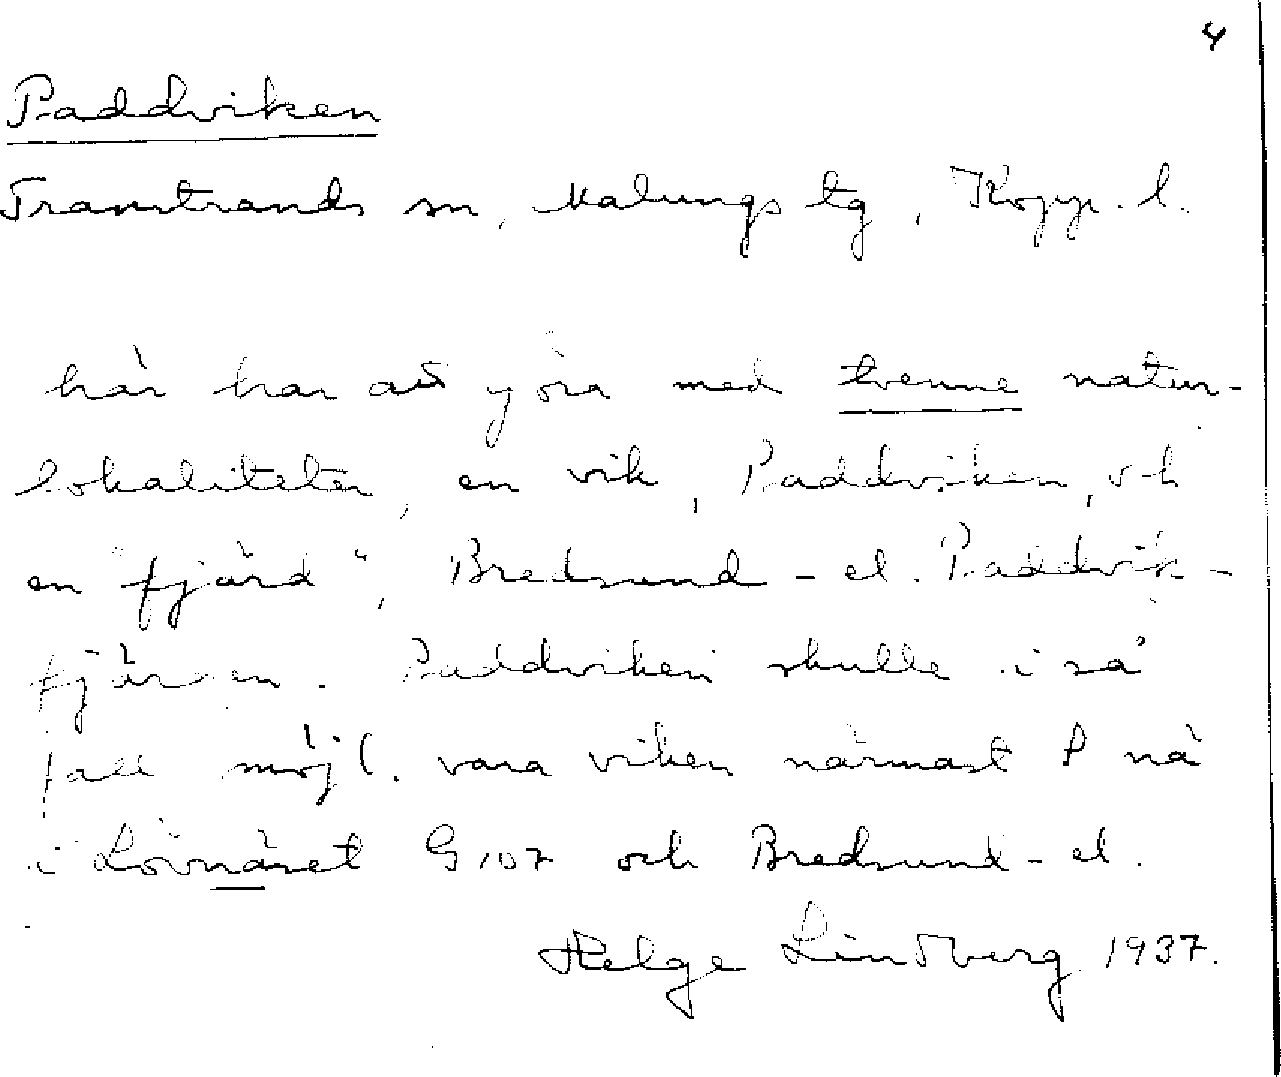 4
Paddviken
Transtrands sn, Malungs tg, Kopp. l.
här har att göra med tvenne natur-
lokaliteter, en vik, Paddviken, och
en "fjärd", Bredsund- el. Paddvik-
fjärden. Paddviken skulle i så
fall möjl. vara viken närmast P nå
i Lövnäset G 107 och Bredsund- el.
Helge Lindberg 1937.